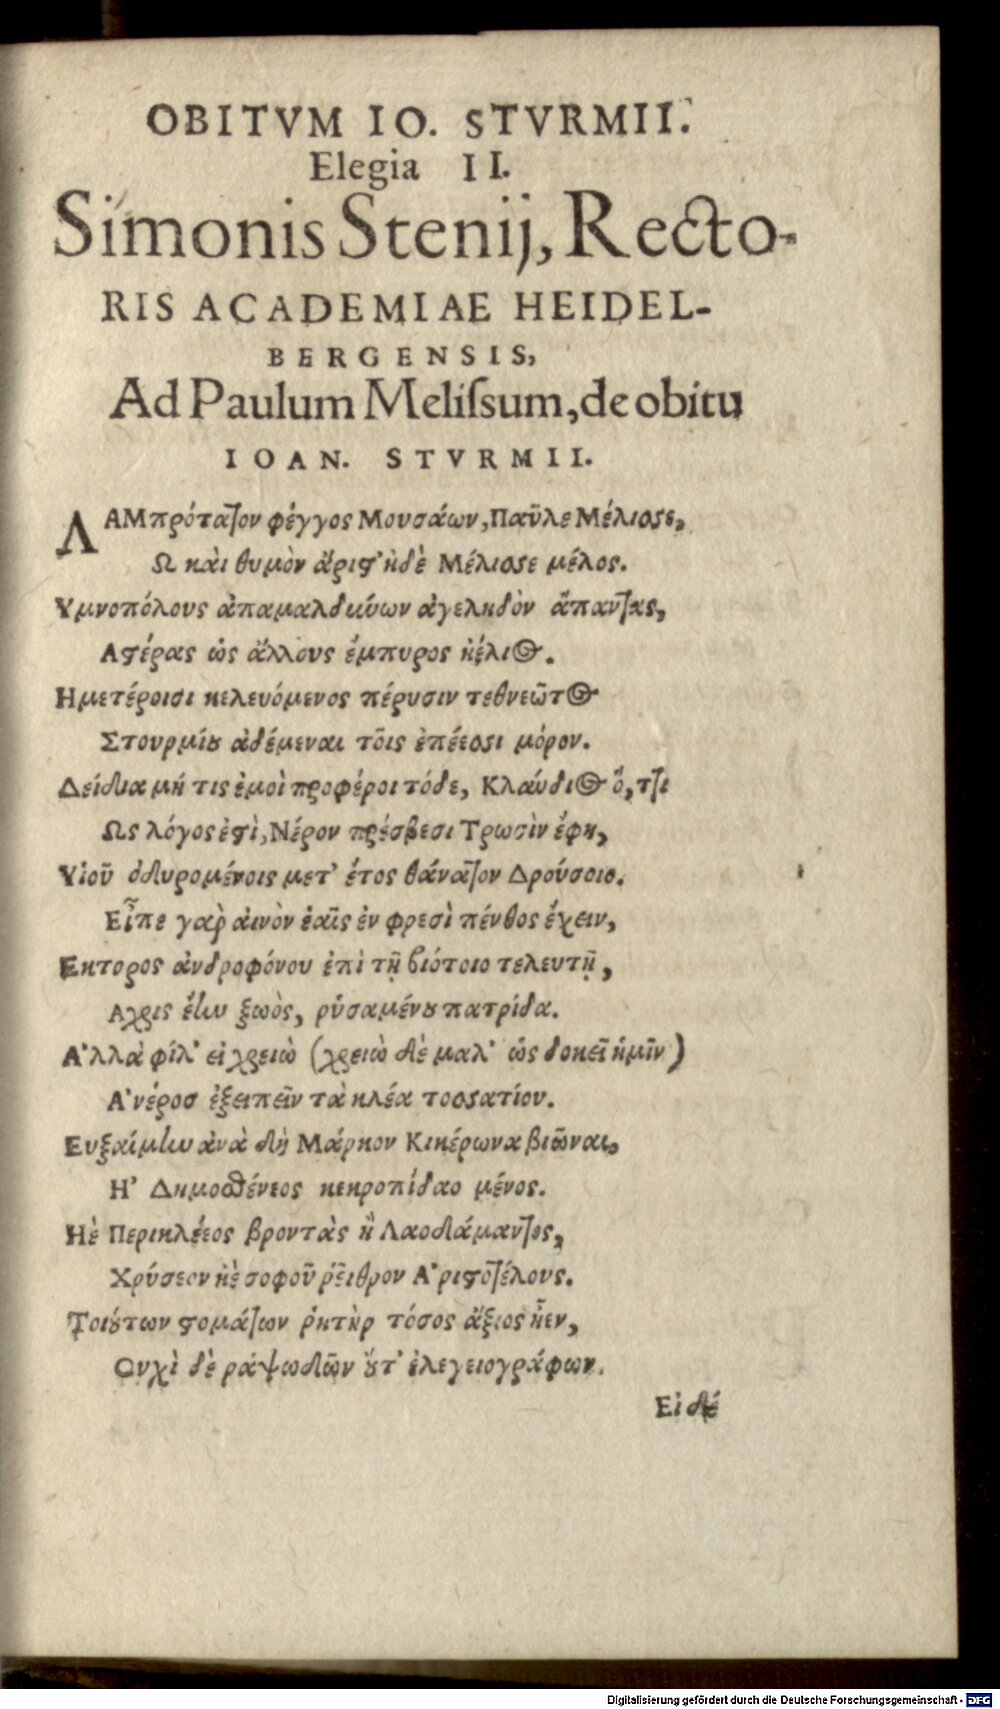 OBITVM IO. STVRMII.
Elegia II.
Simonis Stenij, Recto-
RIS ACADEMIAE HEIDEL-
BERGENSIS,
Ad Paulum Melissum, de obitu
IOAN. STVRMII.
ΛΑΜπρότατον φέγγος Μουσάων, Παῦλε Μέλισσε,
Ω καὶ θυμὸν ἄριστ' ἠδὲ Μέλισσε μέλος.
Υμνοπόλους ἀπαμαλδύνων ἀγεληδὸν ἅπαντας,
Αστέρας ὡς ἄλλους ἔμπυρος ἠέλιος.
Ημετέροισι κελευόμενος πέρυσιν τεθνεῶτος
Στουρμίου ἀδέμεναι τοῖς ἐπέεσσι μόρον.
Δείδια μή τις ἐμοὶ προφέροι τόδε, Κλαύδιος ὅ, τι
Ως λόγος ἐστὶ, Νέρον πρέσβεσι Τρωσὶν ἔφη,
Υἱοῦ ὀδυρομένοις μετ' ἔτος θάνατον Δρούσοιο.
Εἶπε γαρ αἰνὸν ἑαῖς ἐν φρεσὶ πένθος ἔχειν,
Εκτορος ἀνδροφόνου ἐπὶ τῇ βιότοιο τελευτῇ,
Αχρις ἔην ζωὸς, ῥύσαμένου πατρίδα.
Α'λλὰ φίλ' εἰ χρειὼ (χρειὼ δὲ μαλ' ὡς δοκεῖ ἡμῖν)
Α'νέρος ἐξειπεῖν τὰ κλέα τοσσατίου.
Ευξαίμην ἀνὰ δὴ Μάρκον Κικέρωνα βιῶναι,
Η' Δημοσθένεος κεκροπίδαο μένος.
Ηὲ Περικλέεος βροντὰς ἢ Λαοδάμαντος,
Χρύσεον ἠὲ σοφοῦ ῥεῖθρον Α'ριστοτέλους.
Τοιούτων στομάτων ῥητὴρ τόσος ἄξιος ἦεν,
Ουχὶ δὲ ῥάψωδῶν οὔτ' ἐλεγειογράφων.
Εἰ δέ
Digitalisierung gefördert durch die Deutsche Forschungsgemeinschaft - DFG